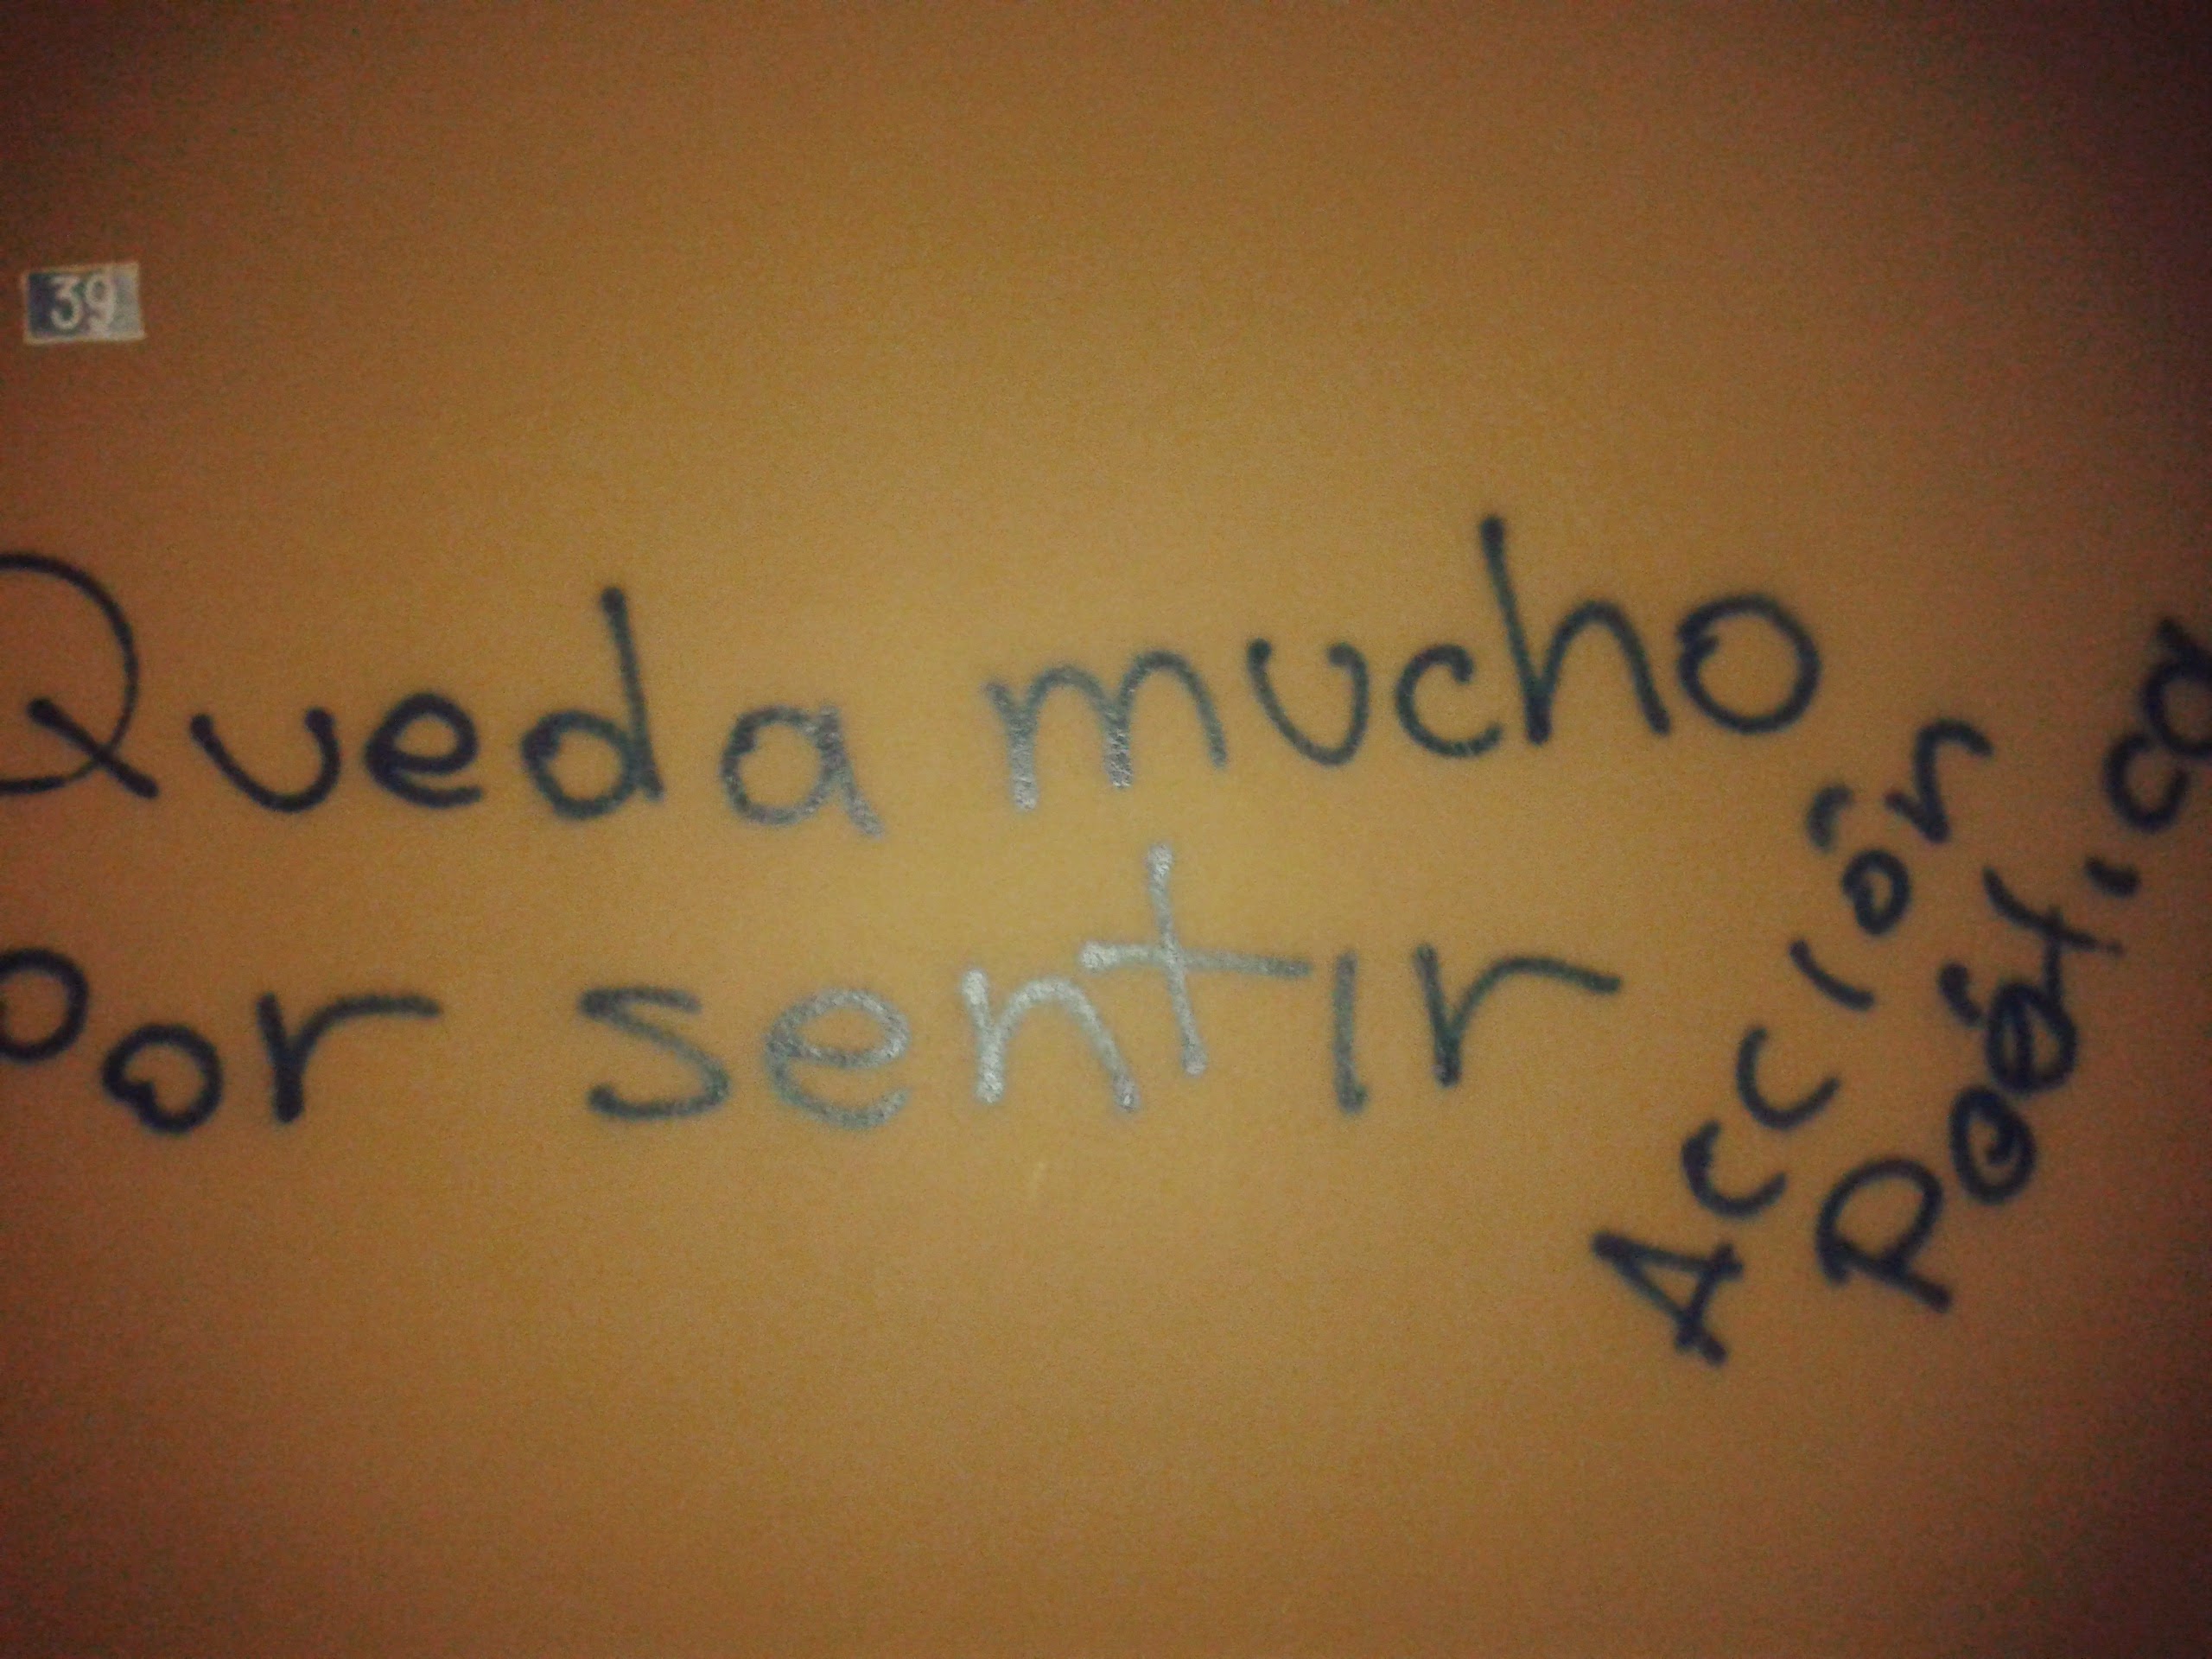 39
Queda mucho
por sentir
Acción
Poética